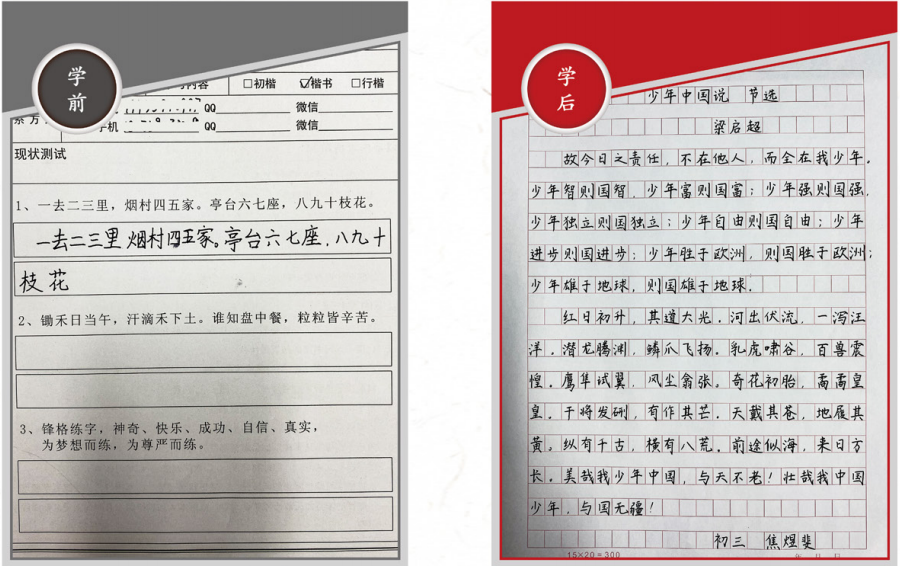 学
前
内容 □初楷 ☑楷书 □行楷
QQ 微信
手机 QQ 微信
现状测试
1、一去二三里，烟村四五家。亭台六七座，八九十枝花。
一去二三里 烟村四五家。亭台六七座.八九十
枝花
2、锄禾日当午，汗滴禾下土。谁知盘中餐，粒粒皆辛苦。
3、锋格练字，神奇、快乐、成功、自信、真实，
为梦想而练，为尊严而练。
学
后
少年中国说 节选
梁启超
故今日之责任，不在他人，而全在我少年。
少年智则国智，少年富则国富；少年强则国强，
少年独立则国独立；少年自由则国自由；少年
进步则国进步；少年胜于欧洲，则国胜于欧洲；
少年雄于地球，则国雄于地球。
红日初升，其道大光。河出伏流，一泻汪
洋。潜龙腾渊，鳞爪飞扬。乳虎啸谷，百兽震
惶。鹰隼试翼，风尘翕张。奇花初胎，矞矞皇
皇。干将发硎，有作其芒。天戴其苍，地履其
黄。纵有千古，横有八荒。前途似海，来日方
长。美哉我少年中国，与天不老！壮哉我中国
少年，与国无疆！
初三 焦煜斐
15×20=300
年 月 日